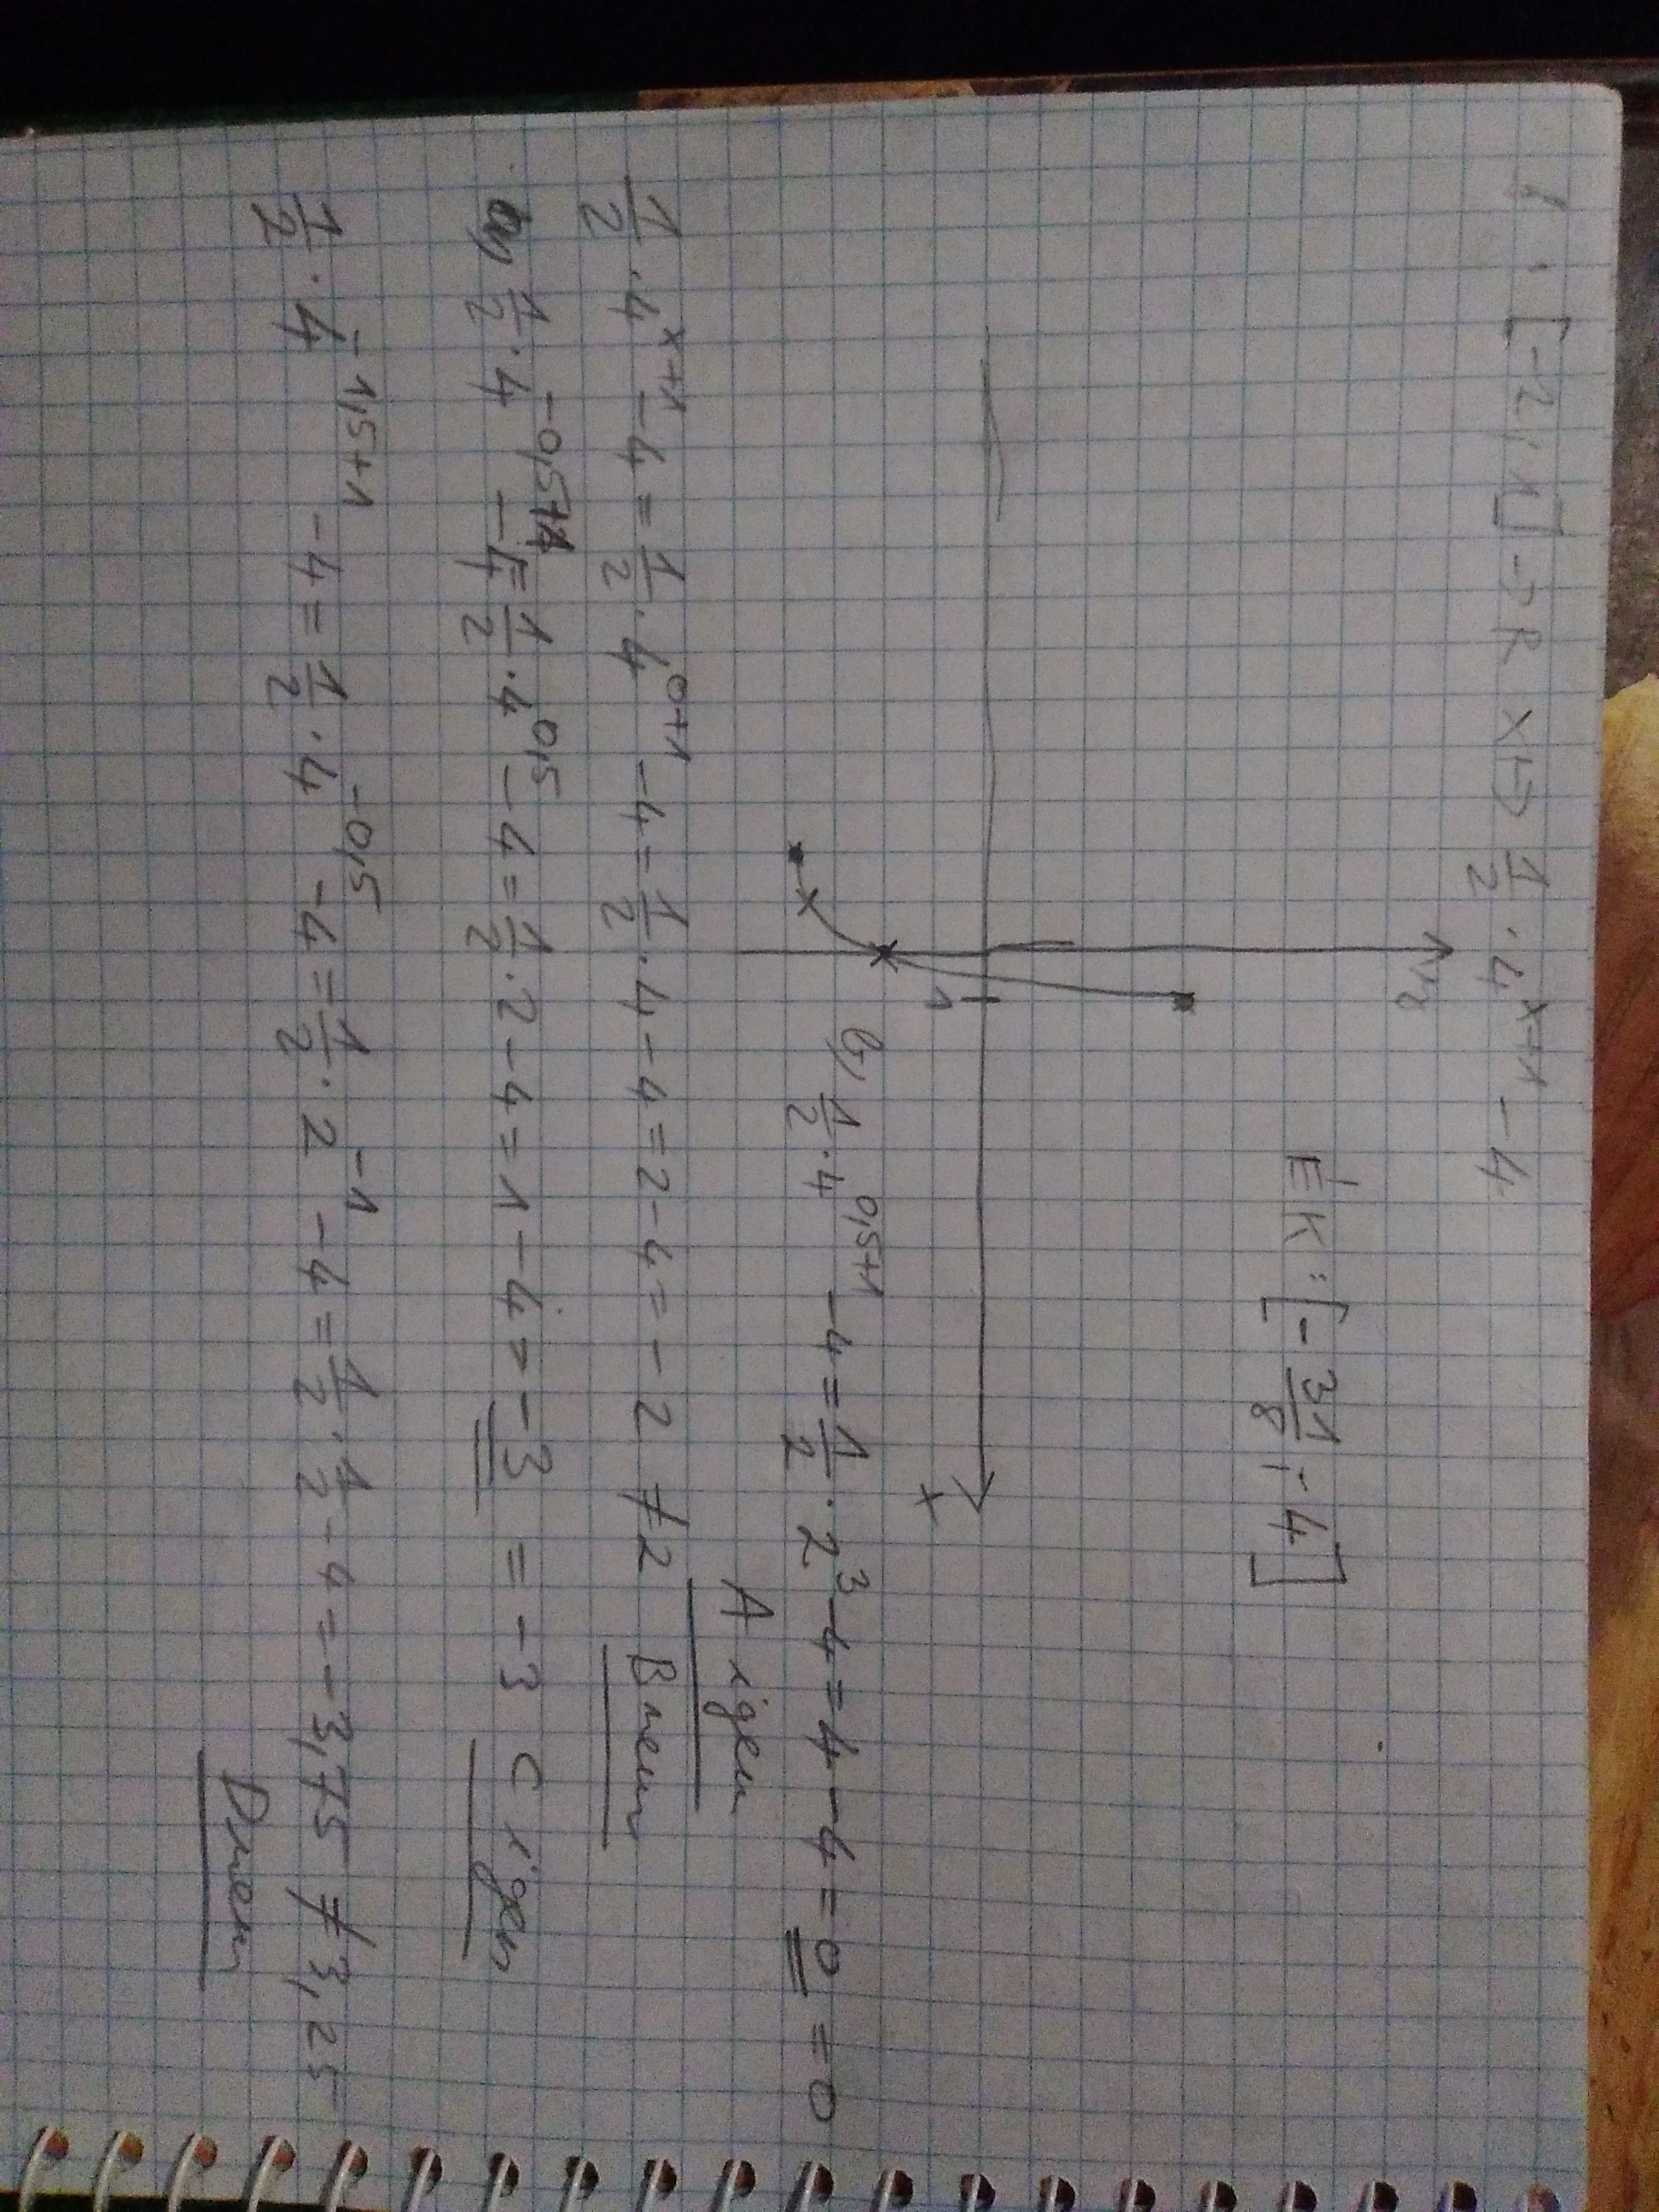 f: [-2; 1] → R x ↦ 1/2 · 4^(x+1) - 4
ÉK: [-31/8; 4]
y
x
1
b) 1/2 · 4^(0,5+1) - 4 = 1/2 · 2^3 - 4 = 4 - 4 = 0 = 0
A igen
1/2 · 4^(x+1) - 4 = 1/2 · 4^(0+1) - 4 = 1/2 · 4 - 4 = 2 - 4 = -2 ≠ 2 B nem
1/2 · 4^(-0,5+1) - 4 = 1/2 · 4^(0,5) - 4 = 1/2 · 2 - 4 = 1 - 4 = -3 = -3 C igen
1/2 · 4^(-1,5+1) - 4 = 1/2 · 4^(-0,5) - 4 = 1/2 · 2^(-1) - 4 = 1/2 · 1/2 - 4 = -3,75 ≠ 3,25
D nem